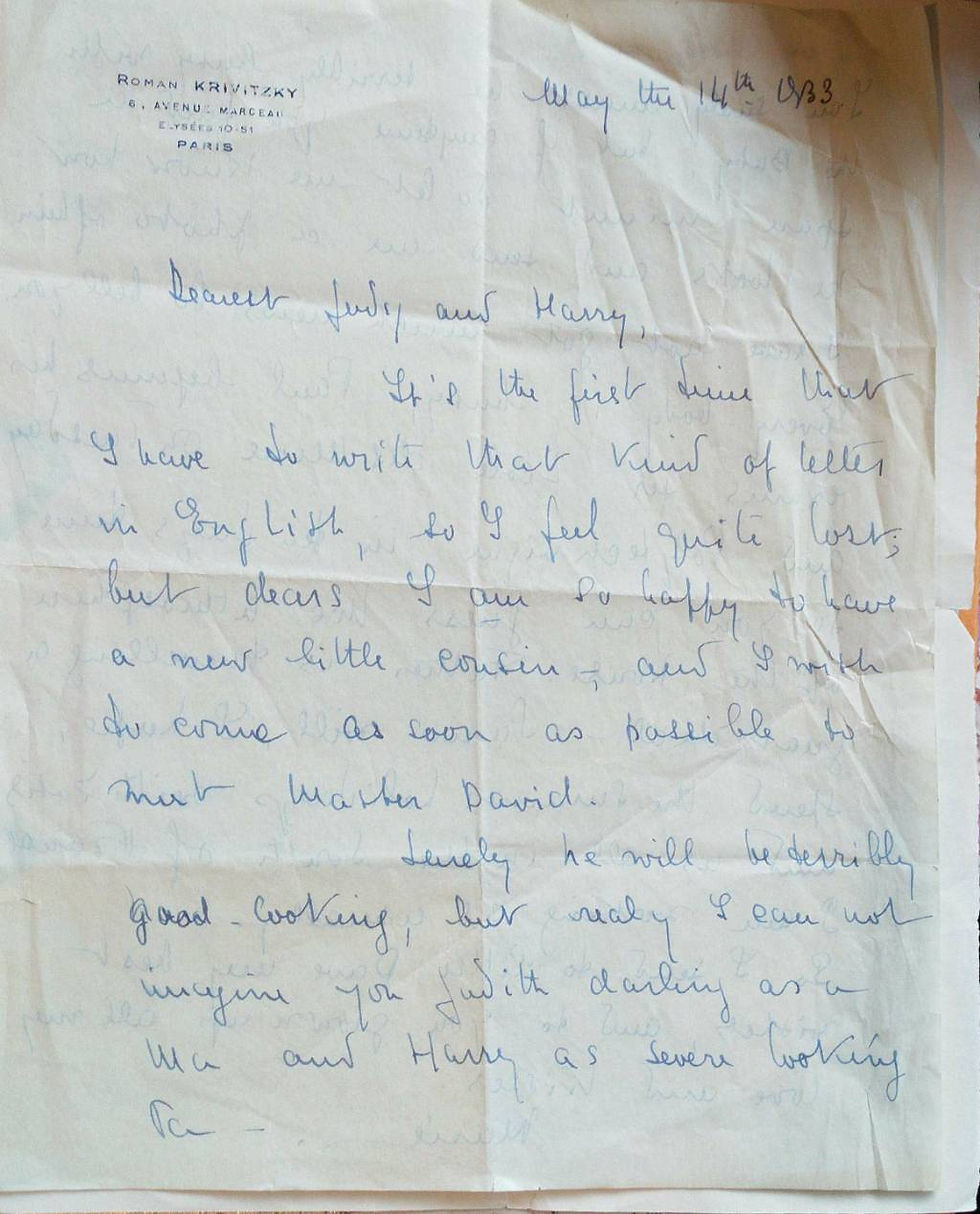 ROMAN KRIVITZKY
6, AVENUE MARCEAU
ELYSÉES 10-51
PARIS
May the 14th 1933
Dearest Judy and Harry,
It's the first time that
I have to write that kind of letter
in English, so I feel quite lost;
but dears I am so happy to have
a new little cousin, and I wish
to come as soon as possible to
meet Master David.
Surely he will be terribly
good-looking, but realy I can not
imagine you Judith darling as a
Ma and Harry as severe looking
Pa -.